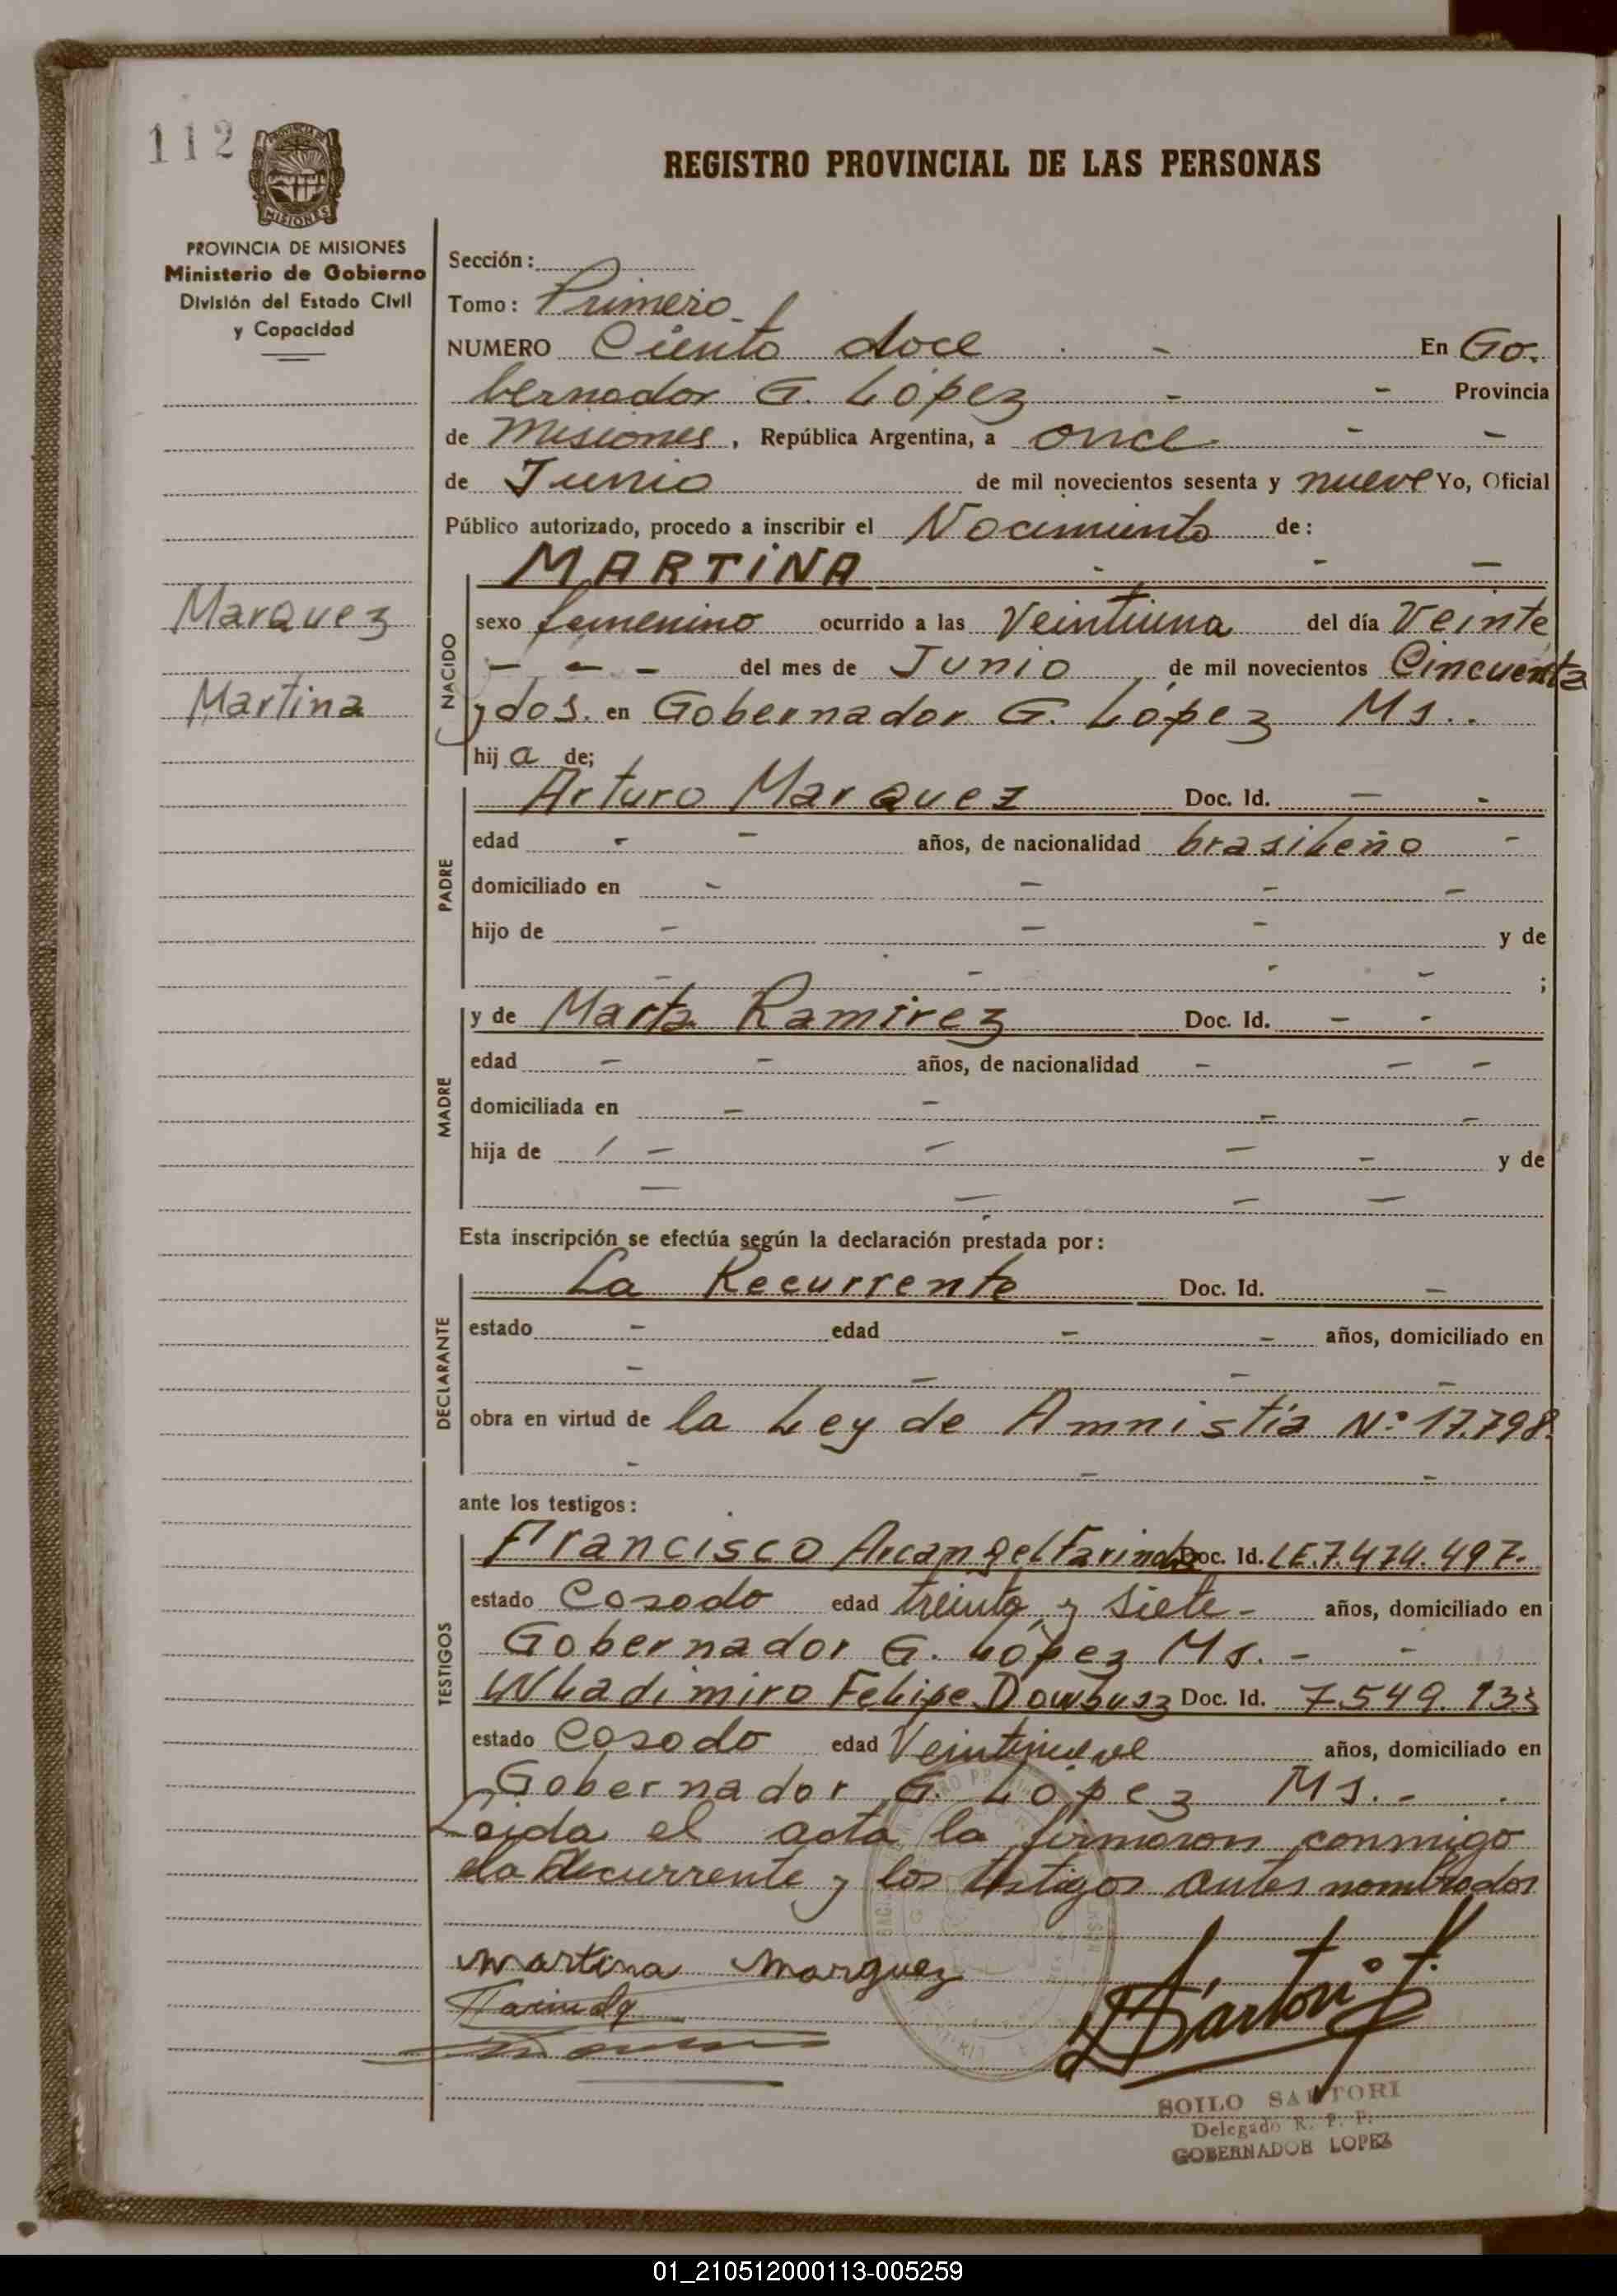 112
PROVINCIA DE MISIONES
Ministerio de Gobierno
División del Estado Civil
y Capacidad
REGISTRO PROVINCIAL DE LAS PERSONAS
Sección:
Tomo: Primero
NUMERO Ciento doce En Go.
bernador G. López Provincia
de Misiones, República Argentina, a once
de Junio de mil novecientos sesenta y nueve Yo, Oficial
Público autorizado, procedo a inscribir el Nacimiento de:
MARTINA
Marquez
Martina
NACIDO
sexo femenino ocurrido a las Veintiuna del día Veinte
del mes de Junio de mil novecientos Cincuenta
y dos. en Gobernador G. López Ms..
hija de;
PADRE
Arturo Marquez Doc. Id.
edad años, de nacionalidad brasileño
domiciliado en
hijo de y de
;
MADRE
y de Marta Ramirez Doc. Id.
edad años, de nacionalidad
domiciliada en
hija de y de
Esta inscripción se efectúa según la declaración prestada por:
DECLARANTE
La Recurrente Doc. Id.
estado edad años, domiciliado en
obra en virtud de la Ley de Amnistía Nº 17.798.
ante los testigos:
TESTIGOS
Francisco Arcangel Farinola Doc. Id. LE.7.474.497.
estado Casado edad treinta y siete - años, domiciliado en
Gobernador G. López Ms. -
Wladimiro Felipe Doc. Id. 7.549.133
estado Casado edad Veintinueve años, domiciliado en
Gobernador G. López Ms. -
Leida el acta la firmaron conmigo
la Recurrente y los testigos antes nombrados
Martina Marquez
Sartori
SOILO SARTORI
Delegado R. P. P.
GOBERNADOR LOPEZ
01_210512000113-005259